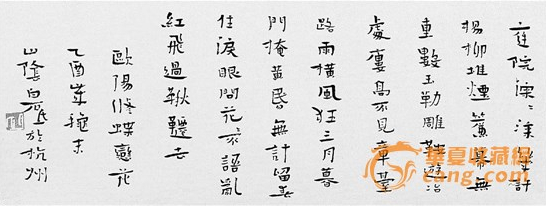 庭院深〻深幾許
楊柳堆煙簾幕無
重數玉勒雕鞍遊冶
處樓高不見章臺
路雨橫風狂三月暮
門掩黃昏無計留春
住淚眼問花〻不語亂
紅飛過鞦韆去
歐陽修蝶戀花
乙酉年穐末
山陰白砥於杭州
华夏收藏网
cang.com